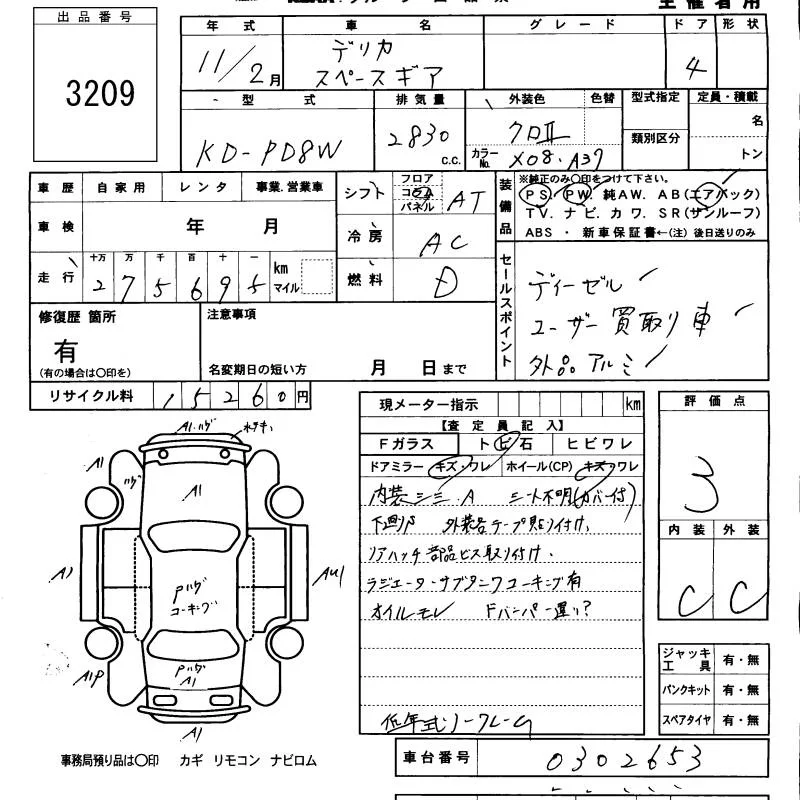 主催者用
出品番号
3209
年式 車名 グレード ドア 形状
11/2月 デリカ スペースギア 4
型式 排気量 外装色 色替 型式指定 定員・積載
KD-PD8W 2830 c.c. クロII カラーNo. X08.A37 類別区分 名 トン
車歴 自家用 レンタ 事業.営業車 シフト フロア コラム パネル AT
車検 年 月 冷房 AC
走行 十万 万 千 百 十
2 7 5 6 9 5 km マイル 燃料 D
装備品 ※純正のみ○印をつけて下さい。
PS. PW. 純AW. AB(エアバック)
TV. ナビ. カワ. SR(サンルーフ)
ABS ・ 新車保証書←(注)後日送りのみ
セールスポイント
ディーゼル
ユーザー買取り車
外品アルミ
修復歴 箇所 注意事項
有
(有の場合は○印を) 名変期日の短い方 月 日まで
リサイクル料 15260円
現メーター指示 km
【査定員記入】
Fガラス トビ石 ヒビワレ
ドアミラー キズ・ワレ ホイール(CP) キズ・ワレ
内装シミ.A シート不明(カバー付)
下廻りS 外装各テープ貼り付け.
リアハッチ部品ビス取り付け.
ラジエーターサブタンクコーキング有
オイルモレ Fバンパー違い?
評価点
3
内装 外装
C C
A1.ハゲ
A1
ハゲ
A1
A1
AU1
Pハゲ
コーキング
A1P
Pハゲ
A1
A1
ジャッキ工具 有・無
パンクキット 有・無
スペアタイヤ 有・無
事務局預り品は○印 カギ リモコン ナビロム
車台番号 0302653